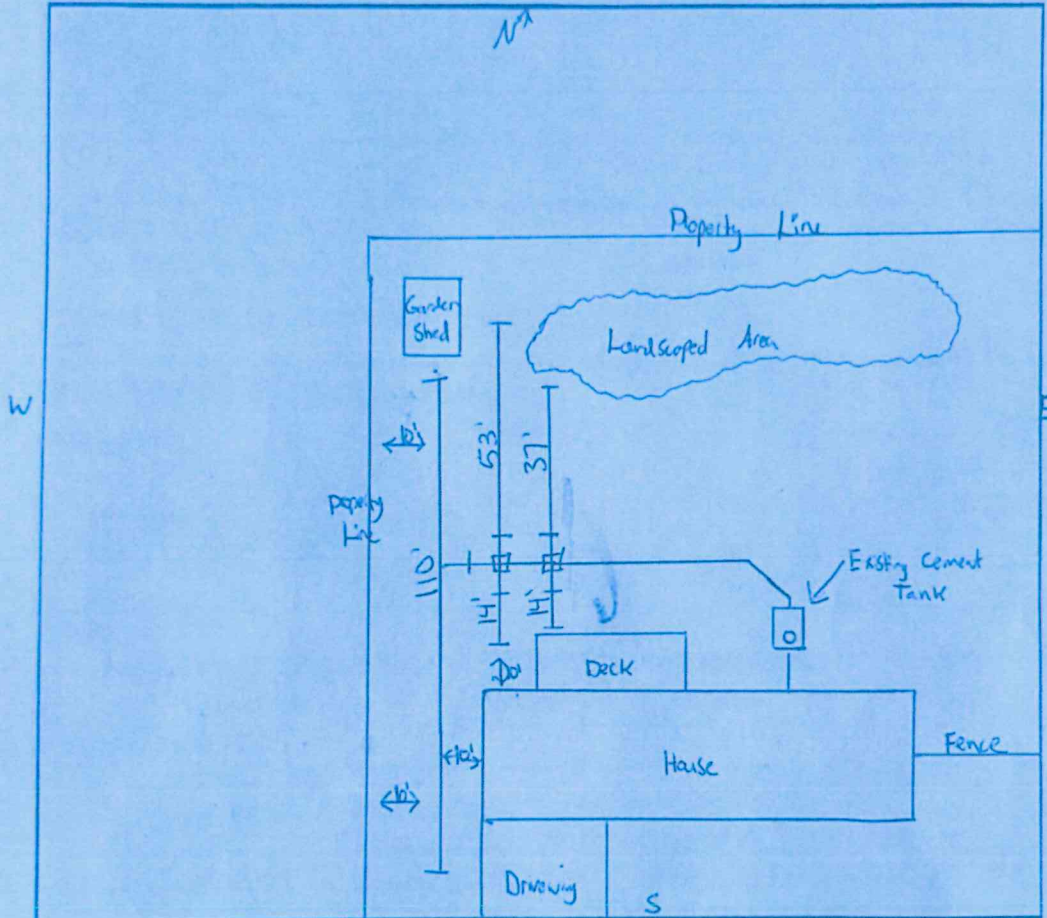 N
Property Line
Garden
Shed
Landscaped Area
W
E
10'
53'
37'
Property
Line
110'
14'
14'
Existing Cement
Tank
10'
Deck
10'
House
Fence
10'
Driveway
S